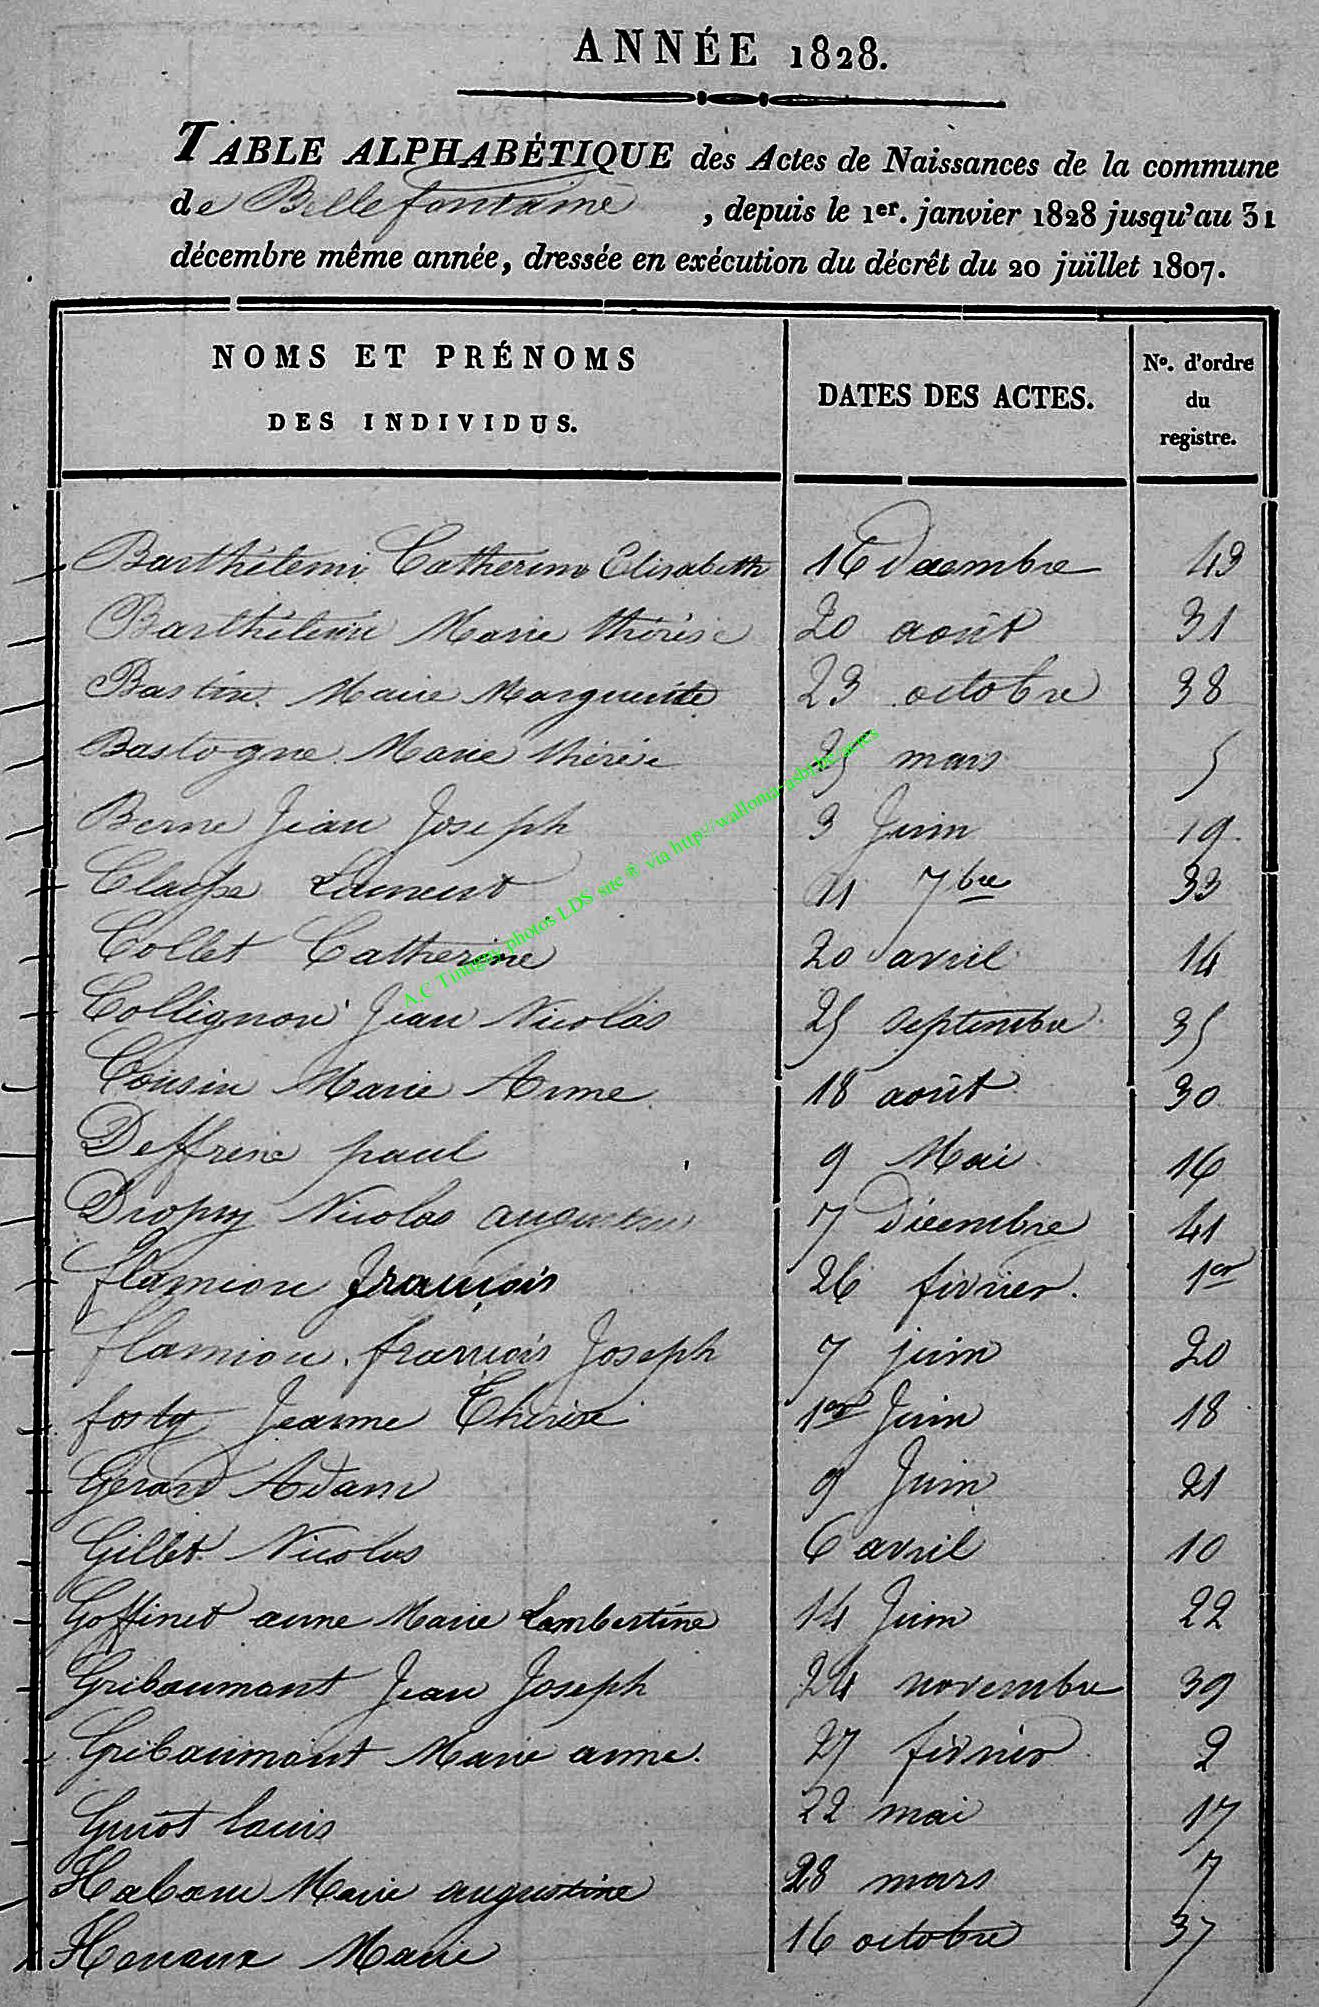 ANNÉE 1828.
TABLE ALPHABÉTIQUE des Actes de Naissances de la commune
de Bellefontaine , depuis le 1er. janvier 1828 jusqu'au 31
décembre même année, dressée en exécution du décrêt du 20 juillet 1807.
NOMS ET PRÉNOMS
DES INDIVIDUS.
DATES DES ACTES.
No. d'ordre
du
registre.
Barthélemi Catherine Elisabeth 16 décembre 43
Barthélemi Marie thérèse 20 août 31
Bastin Marie Marguerite 23 octobre 38
Bastogne Marie thérèse 25 mars 5
Berne Jean Joseph 3 Juin 19
Claisse Laurent 11 7bre 33
Collet Catherine 20 avril 14
Collignon Jean Nicolas 25 septembre 35
Cousin Marie Anne 18 août 30
Deffrene paul 9 Mai 16
Dropsy Nicolas augustin 7 décembre 41
flamion françois 26 février. 1er
flamion françois Joseph 7 juin 20
fosty Jeanne Thérèse 1er Juin 18
Gerard Adam 9 Juin 21
Gillet Nicolas 6 avril 10
Goffinet anne Marie Lambertine 14 Juin 22
Gribaumont Jean Joseph 24 novembre 39
Gribaumont Marie anne. 27 février 2
Guiot louis 22 mai 17
Habaru Marie augustine 28 mars 7
Henaux Marie 16 octobre 37
A.C Tintigny photos LDS site ® via http://wallonia-asbl.be/actes